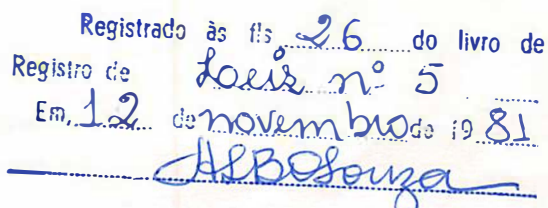 Registrado às fls 26 do livro de
Registro de Leis nº 5
Em, 12 de novembro de 19 81